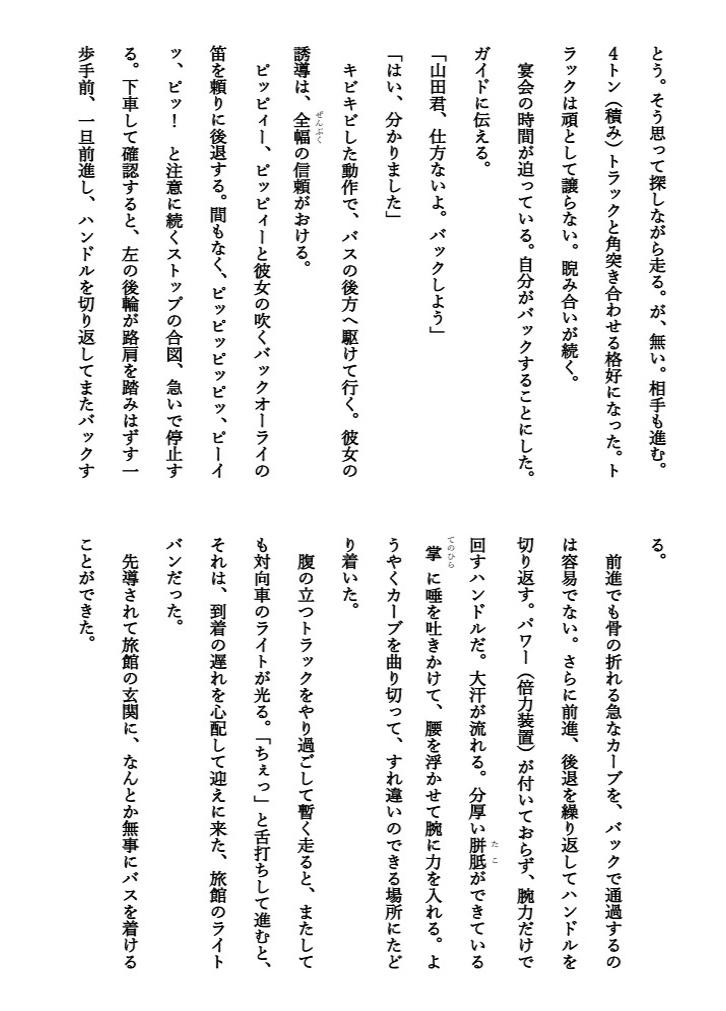 とう。そう思って探しながら走る。が、無い。相手も進む。
4トン（積み）トラックと角突き合わせる格好になった。ト
ラックは頑として譲らない。睨み合いが続く。
　宴会の時間が迫っている。自分がバックすることにした。
ガイドに伝える。
「山田君、仕方ないよ。バックしよう」
「はい、分かりました」
　キビキビした動作で、バスの後方へ駆けて行く。彼女の
誘導は、全幅の信頼がおける。
ぜんぷく
　ピッピィー、ピッピィーと彼女の吹くバックオーライの
笛を頼りに後退する。間もなく、ピッピッピッピッ、ピーイ
ッ、ピッ！　と注意に続くストップの合図、急いで停止す
る。下車して確認すると、左の後輪が路肩を踏みはずす一
歩手前、一旦前進し、ハンドルを切り返してまたバックす
る。
　前進でも骨の折れる急なカーブを、バックで通過するの
は容易でない。さらに前進、後退を繰り返してハンドルを
切り返す。パワー（倍力装置）が付いておらず、腕力だけで
回すハンドルだ。大汗が流れる。分厚い胼胝ができている
たこ
掌に唾を吐きかけて、腰を浮かせて腕に力を入れる。よ
てのひら
うやくカーブを曲り切って、すれ違いのできる場所にたど
り着いた。
　腹の立つトラックをやり過ごして暫く走ると、またして
も対向車のライトが光る。「ちぇっ」と舌打ちして進むと、
それは、到着の遅れを心配して迎えに来た、旅館のライト
バンだった。
　先導されて旅館の玄関に、なんとか無事にバスを着ける
ことができた。